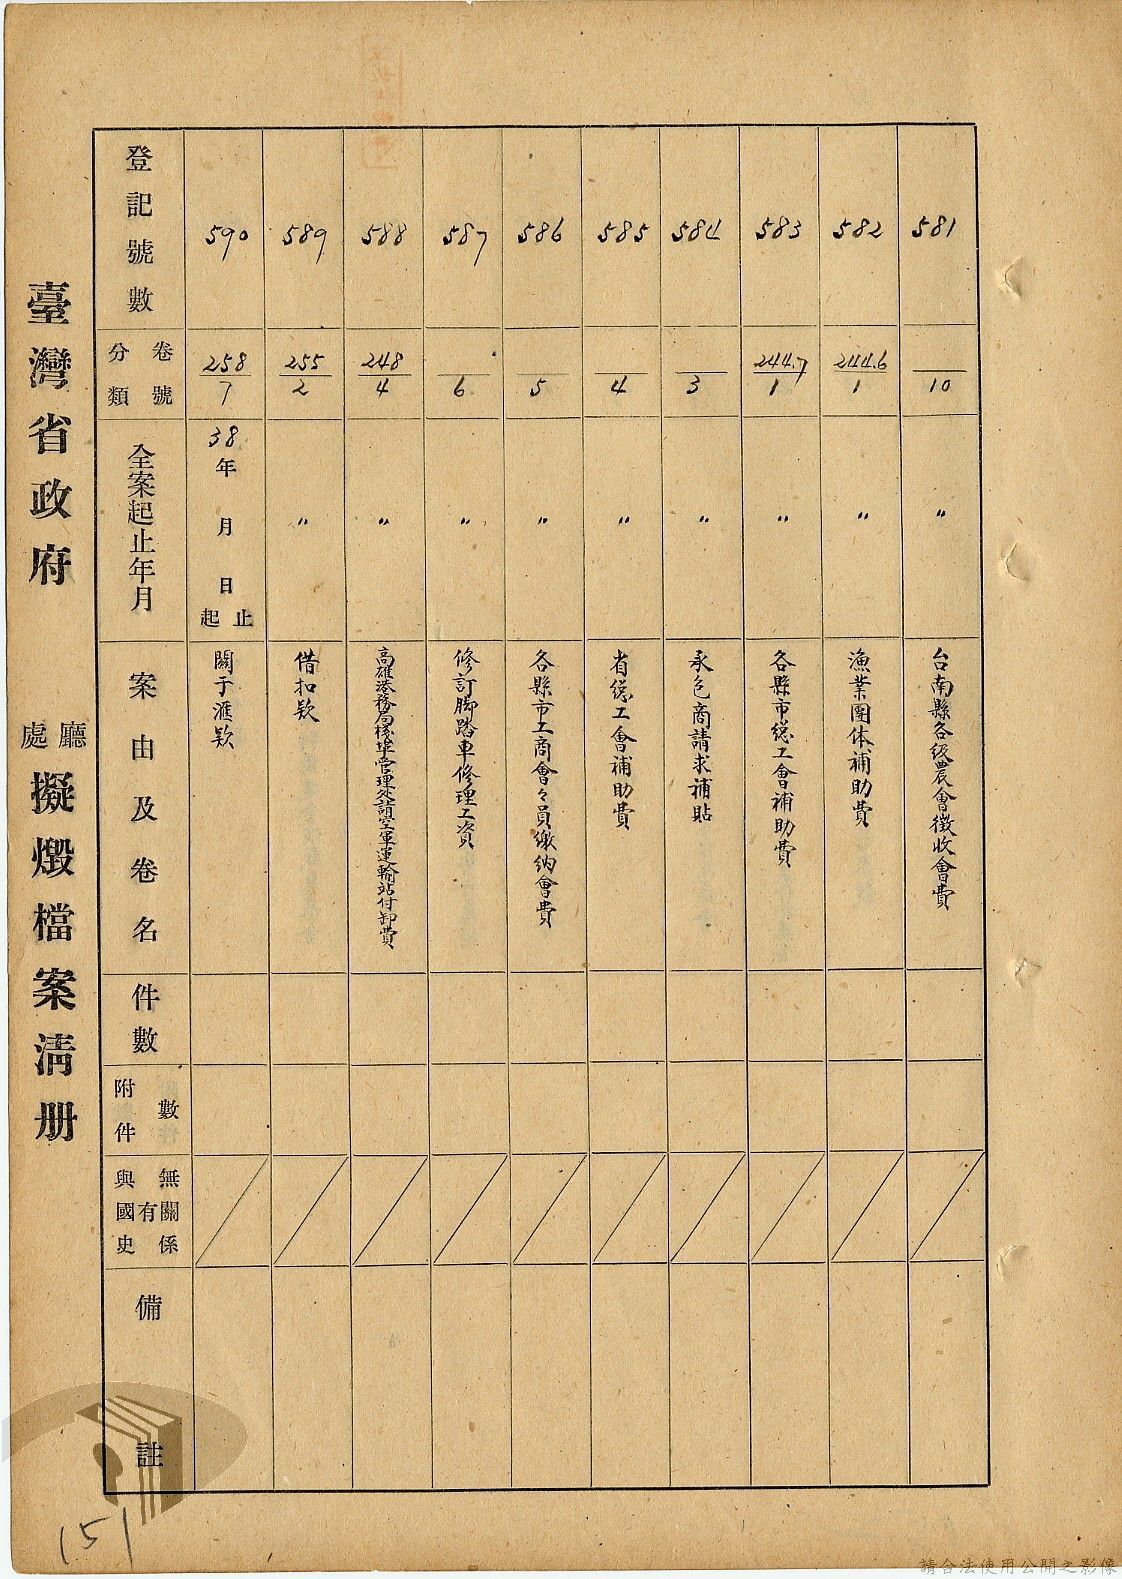 臺灣省政府 廳處 擬燬檔案清册
登記號數
分類 卷號
全案起止年月
案由及卷名
件數
附件 件數
與國史 有無關係
備註
590
258/7
38年 月 日 起止
關于滙欵
589
255/2
〃
借扣欵
588
248/4
〃
高雄港務局棧埠管理處請空軍運輸站付卸費
587
6
〃
修訂脚踏車修理工資
586
5
〃
各縣市工商會々員繳納會費
585
4
〃
省総工會補助費
584
3
〃
承包商請求補貼
583
244.7/1
〃
各縣市総工會補助費
582
244.6/1
〃
漁業團体補助費
581
10
〃
台南縣各級農會徵收會費
151
請合法使用公開之影像